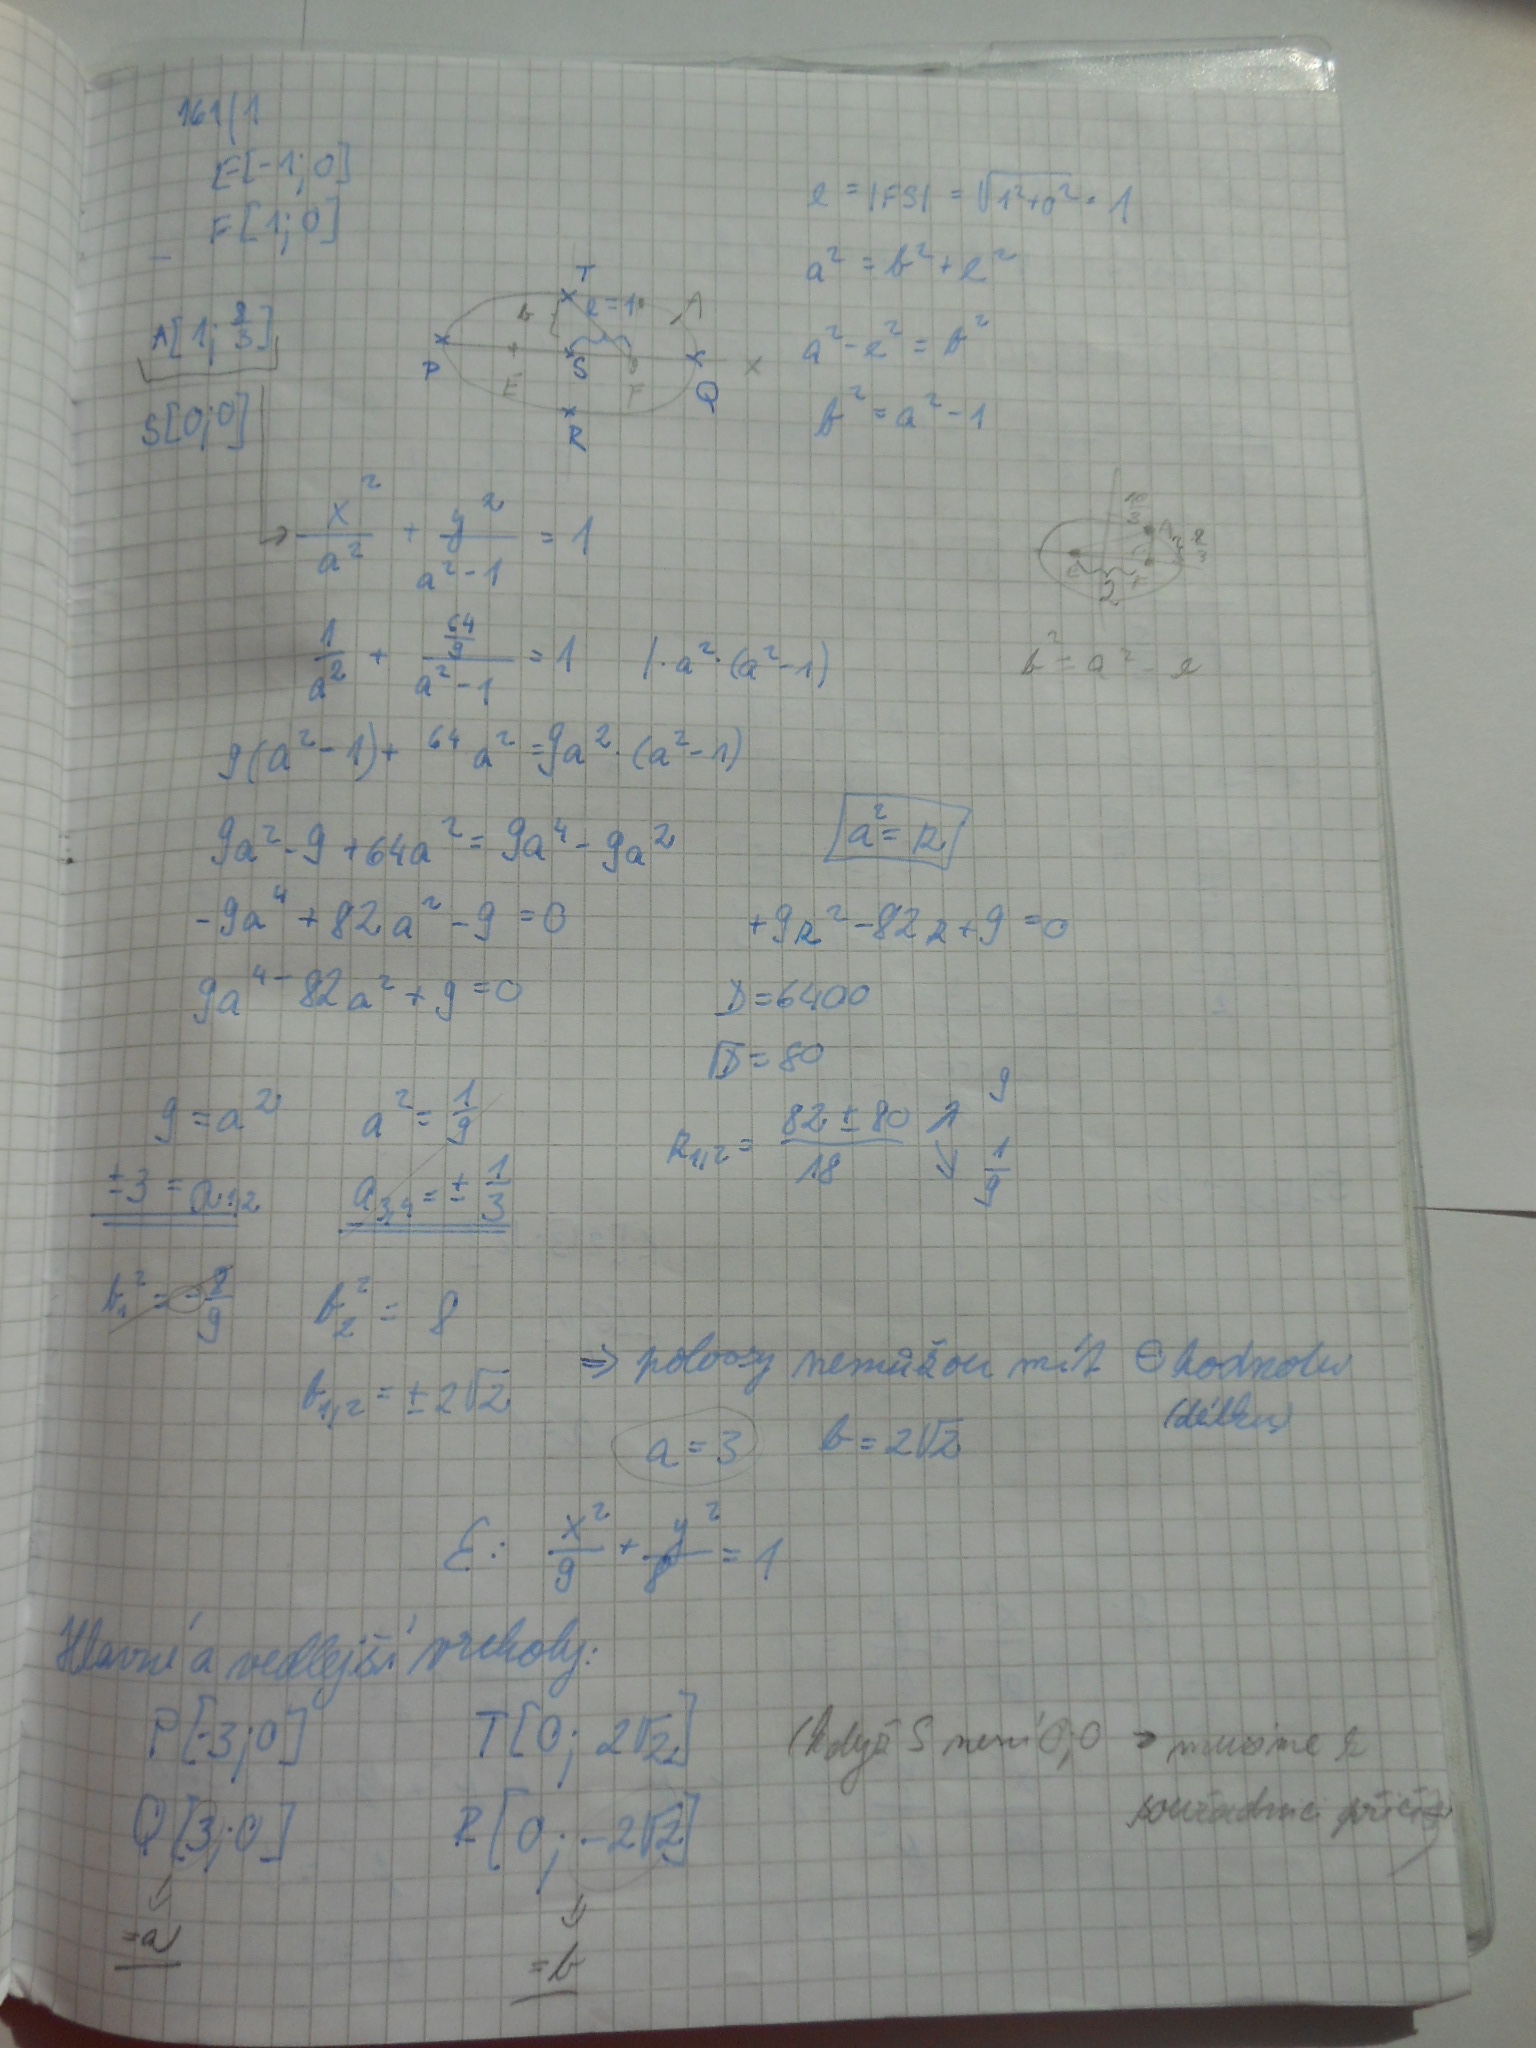 161/1
E[-1; 0]
F[1; 0]
A[1; 8/3]
S[0; 0]
e = |FS| = √(1²+0²) = 1
a² = b² + e²
a² - e² = b²
b² = a² - 1
T
b
e = 1
A
P
E
S
F
Q
x
R
x²/a² + y²/(a²-1) = 1
10/3
A
8/3
E
F
2
b² = a² - e
1/a² + (64/9)/(a²-1) = 1 /·a²·(a²-1)
9(a²-1) + 64a² = 9a²·(a²-1)
9a² - 9 + 64a² = 9a⁴ - 9a²
a² = k
-9a⁴ + 82a² - 9 = 0
+9k² - 82k + 9 = 0
9a⁴ - 82a² + 9 = 0
D = 6400
√D = 80
k₁,₂ = (82 ± 80)/18
9
1/9
9 = a²
a² = 1/9
±3 = a₁,₂
a₃,₄ = ± 1/3
b₁² = -8/9
b₂² = 8
b₁,₂ = ±2√2
⇒ poloosy nemůžou mít ⊖ hodnotu
(délku)
a = 3
b = 2√2
E: x²/9 + y²/8 = 1
Hlavní a vedlejší vrcholy:
P[-3; 0]
T[0; 2√2]
Q[3; 0]
R[0; -2√2]
(když S není 0;0 → musíme k
souřadnici přičíst)
= a
= b